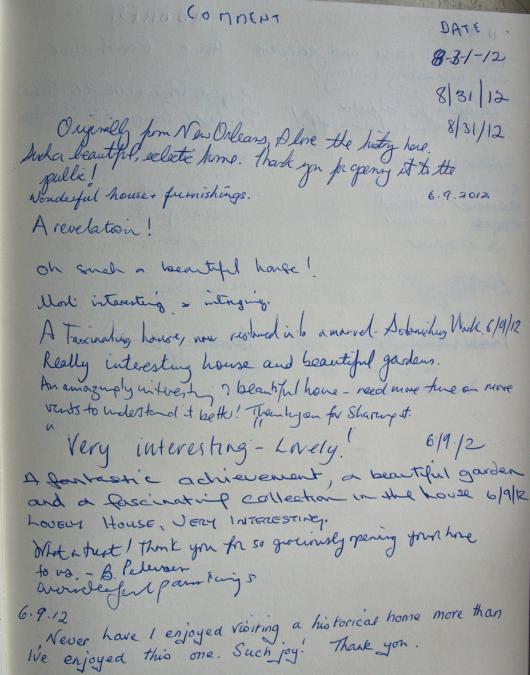 COMMENT DATE
8-31-12
8/31/12
8/31/12
Originally from New Orleans, I love the history here.
Such a beautiful, eclectic home. Thank you for opening it to the
public!
Wonderful house + furnishings. 6.9.2012
A revelation!
Oh such a beautiful house!
Most interesting & intriguing.
A Fascinating house, now restored into a marvel - Astonishing Work 6/9/12
Really interesting house and beautiful gardens.
An amazingly interesting & beautiful home - need more time or more
visits to understand it better! Thank you for sharing it.
Very interesting - Lovely! 6/9/12
A fantastic achievement, a beautiful garden
and a fascinating collection in the house 6/9/12
LOVELY HOUSE, VERY INTERESTING.
What a treat! Thank you for so graciously opening your home
to us. - B. Petersen
wonderful paintings
6.9.12
Never have I enjoyed visiting a historical home more than
I've enjoyed this one. Such joy! Thank you.